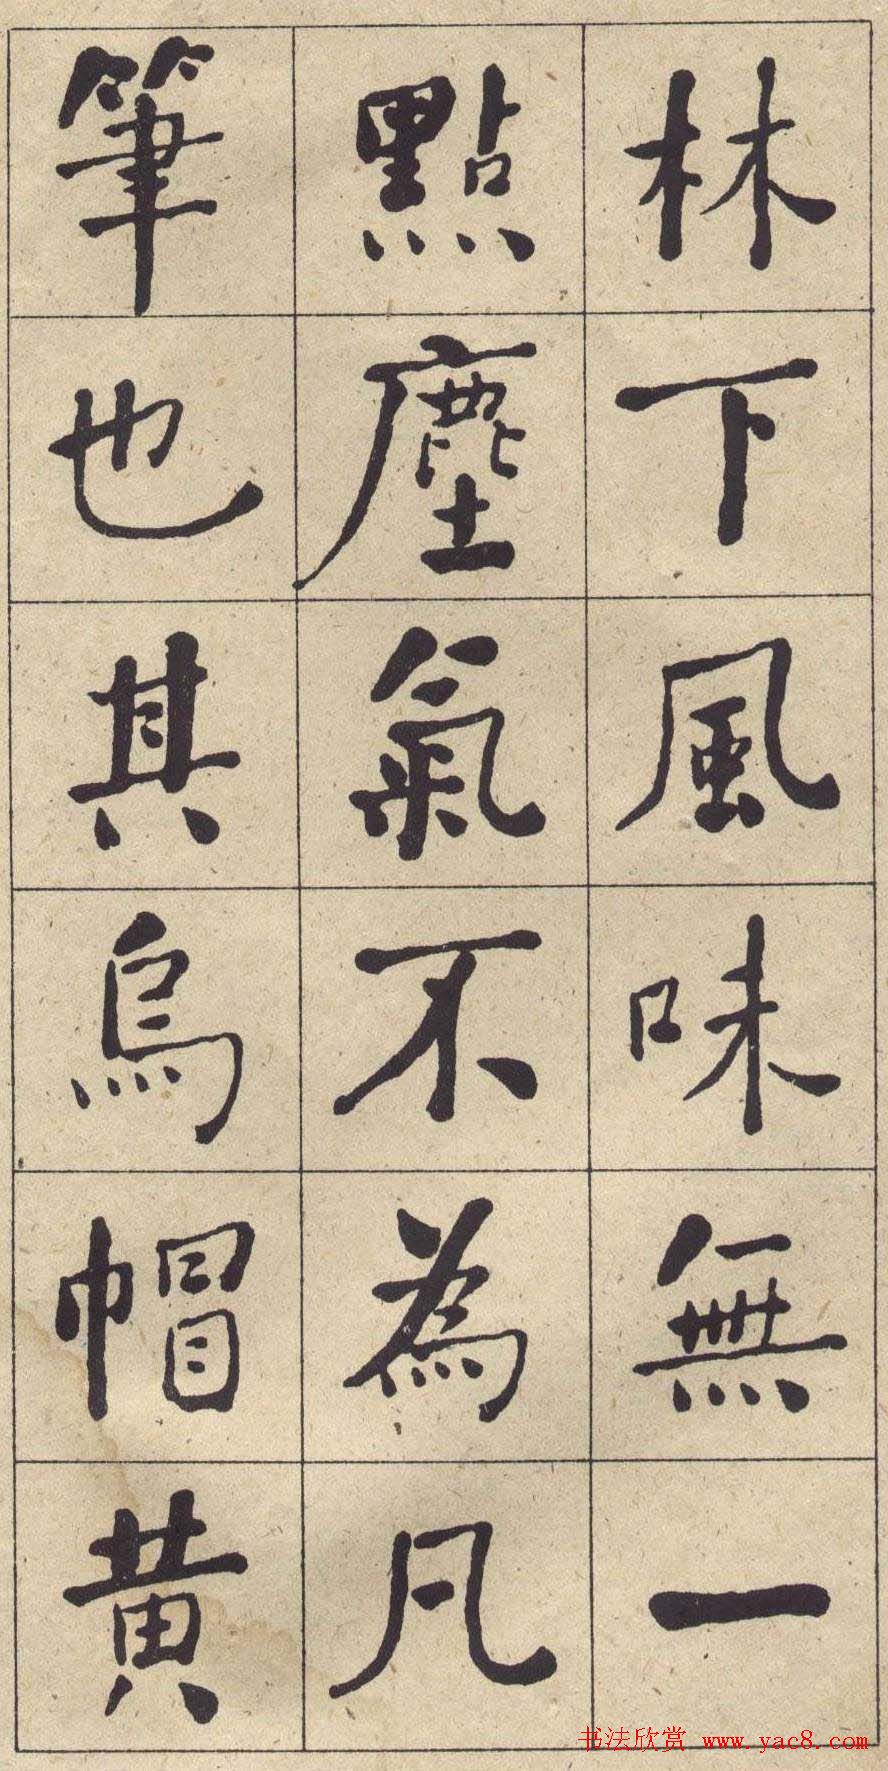 林下風味無一
點塵氣不為凡
筆也其烏帽黃
书法欣赏 www.yac8.com